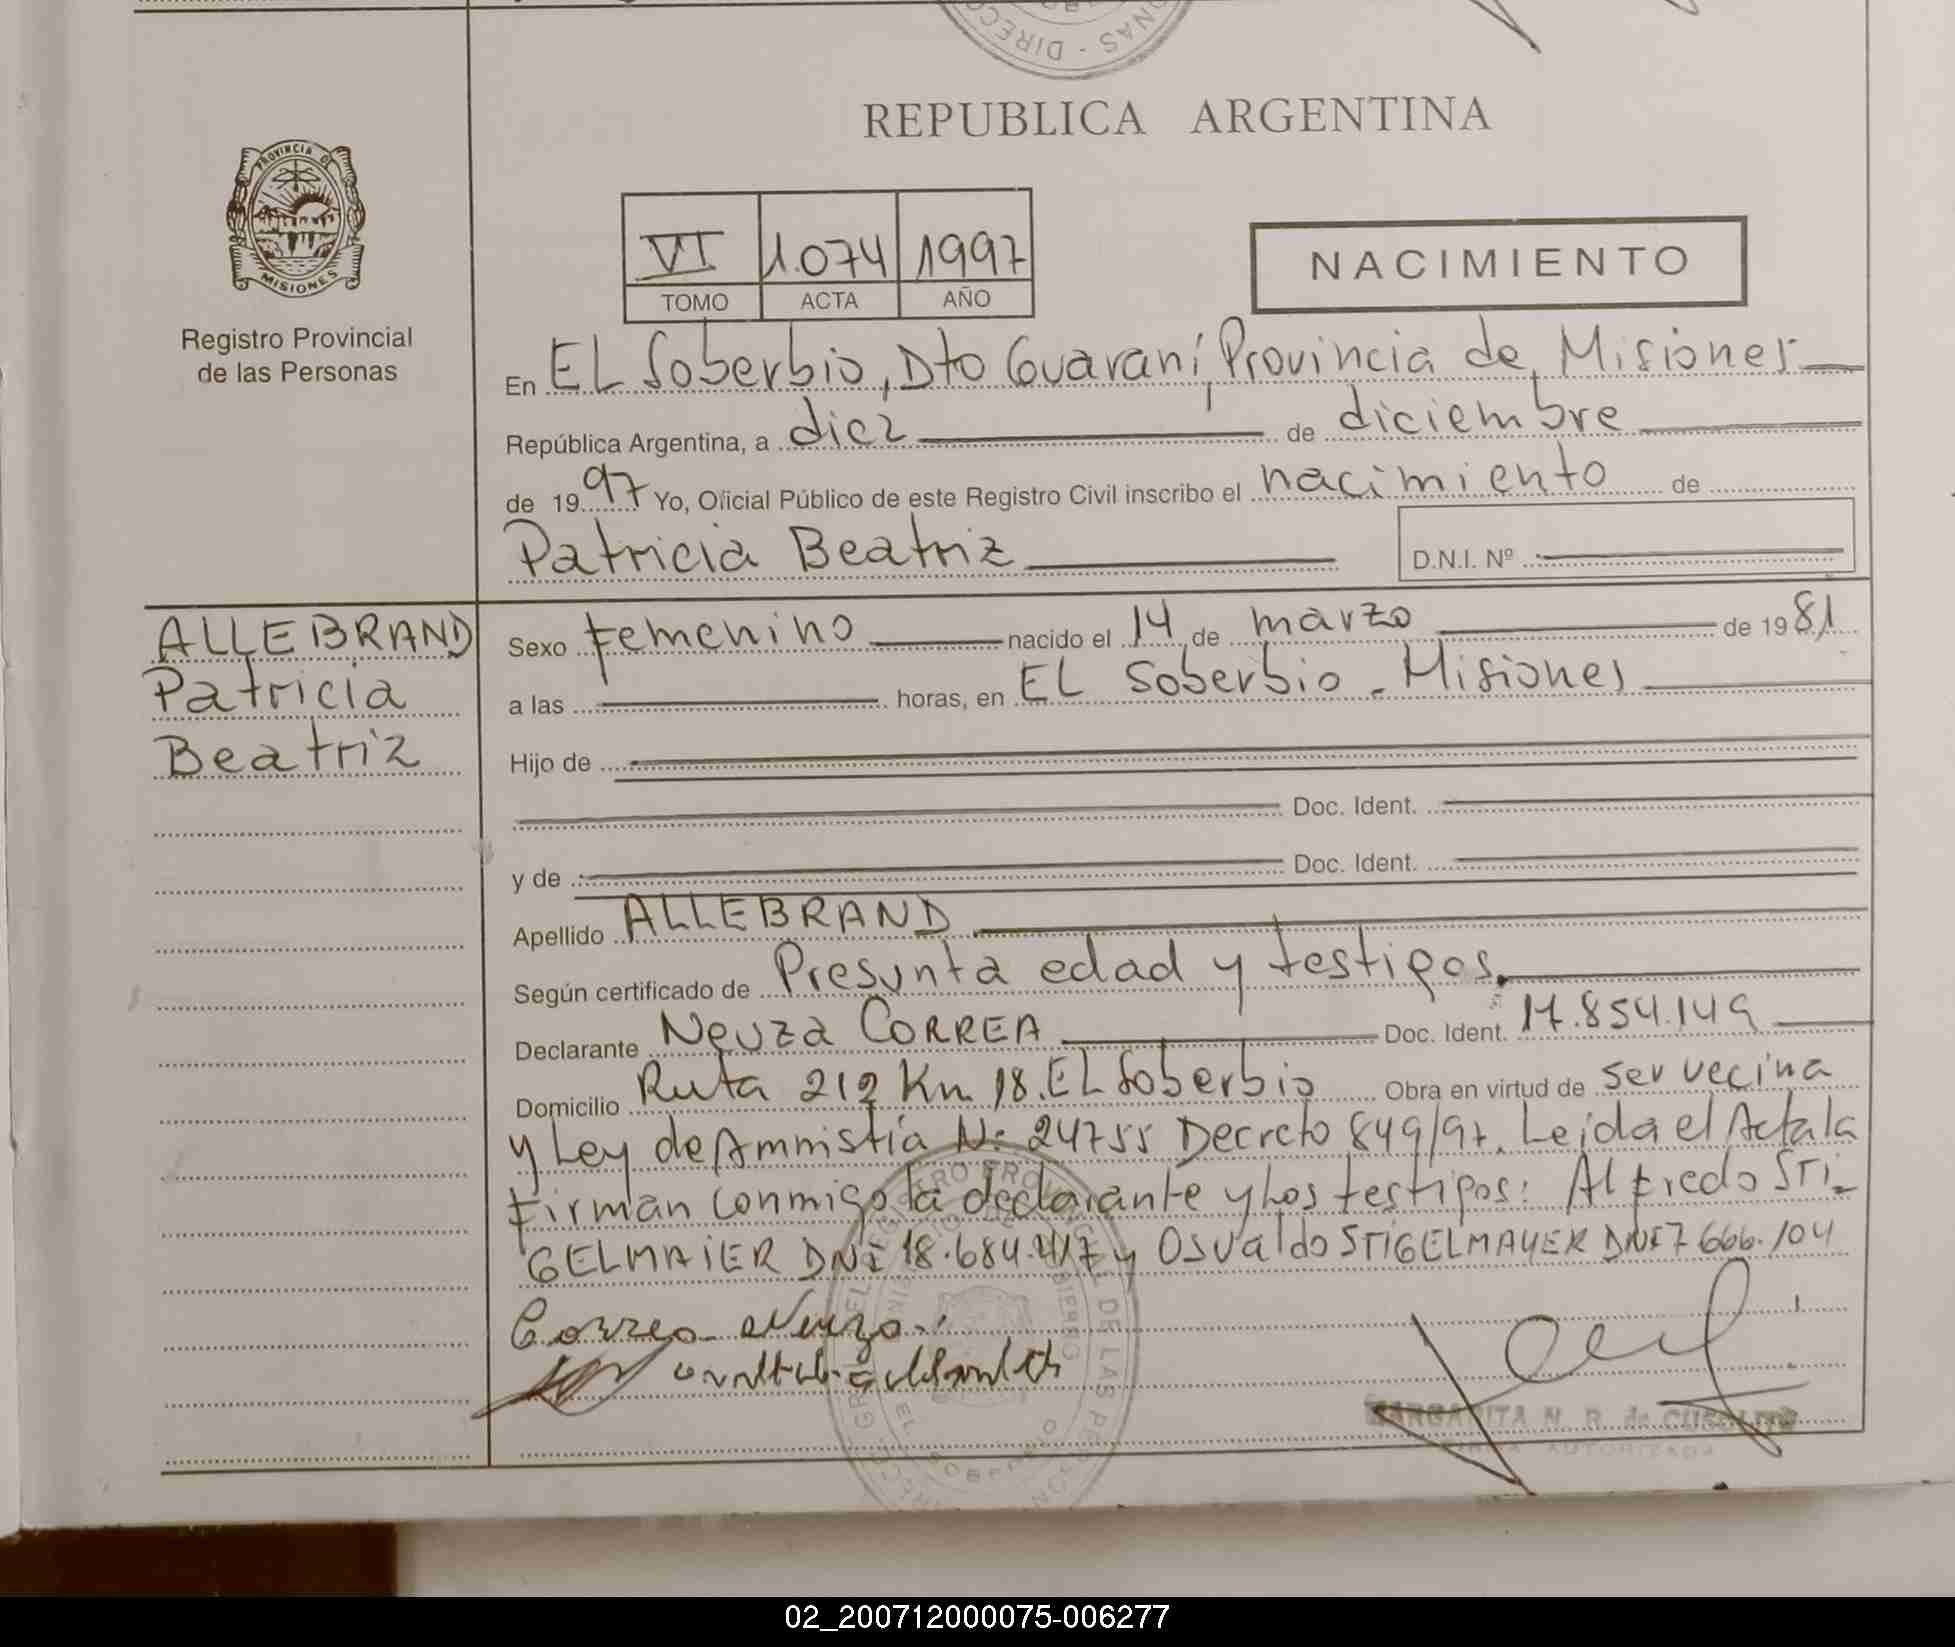 REPUBLICA ARGENTINA
PROVINCIA DE
MISIONES
Registro Provincial
de las Personas
VI 1.074 1997
TOMO ACTA AÑO
NACIMIENTO
En EL Soberbio, Dto Guaraní, Provincia de Misiones
República Argentina, a diez de diciembre
de 1997 Yo, Oficial Público de este Registro Civil inscribo el nacimiento de
Patricia Beatriz D.N.I. Nº
ALLEBRAND
Patricia
Beatriz
Sexo Femenino nacido el 14 de marzo de 1981
a las horas, en EL Soberbio - Misiones
Hijo de
Doc. Ident.
y de Doc. Ident.
Apellido ALLEBRAND
Según certificado de Presunta edad y testigos.
Declarante Neuza CORREA Doc. Ident. 17.854.149
Domicilio Ruta 212 Km 18. EL Soberbio Obra en virtud de ser vecina
y Ley de Amnistía Nº 24755 Decreto 849/97. Leida el Acta la
Firman conmigo la declarante y los testigos: Alfredo STI-
GELMAIER DNI 18.684.417 y Osvaldo STIGELMAYER DNI 7.666.104
Correa Neuza
MARGARITA N. R. de
AUTORIZADA
02_200712000075-006277